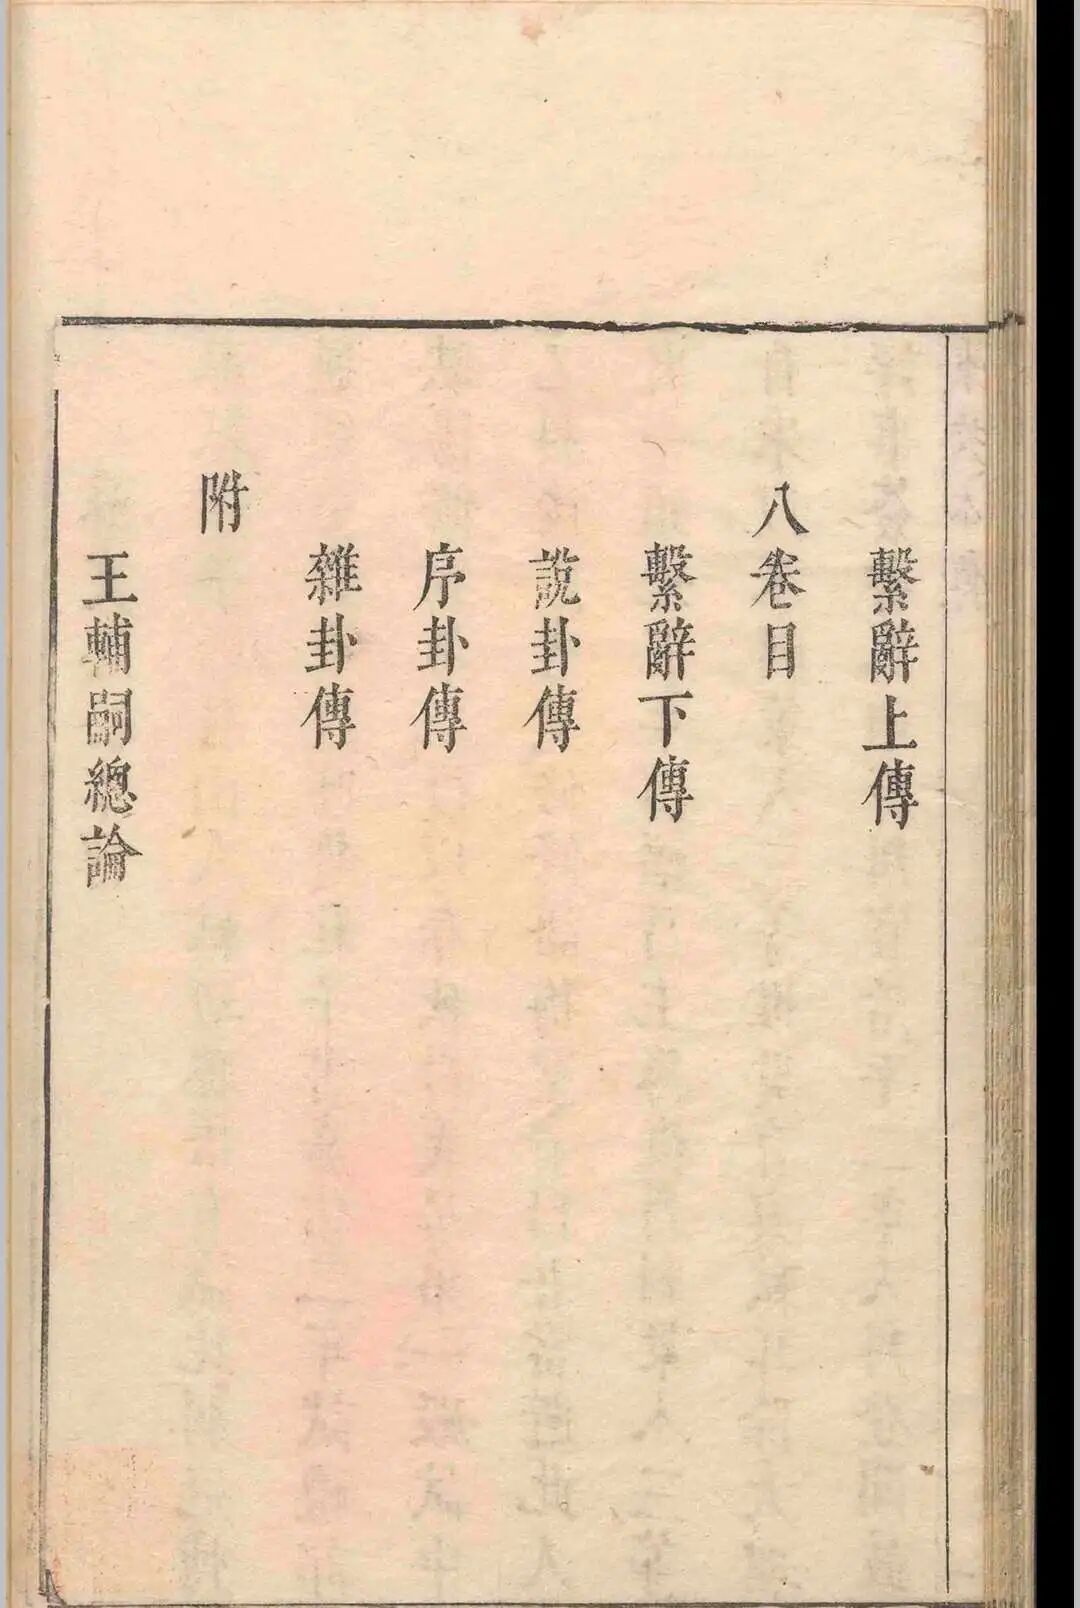 繫辭上傳
八卷目
繫辭下傳
說卦傳
序卦傳
雜卦傳
附
王輔嗣總論